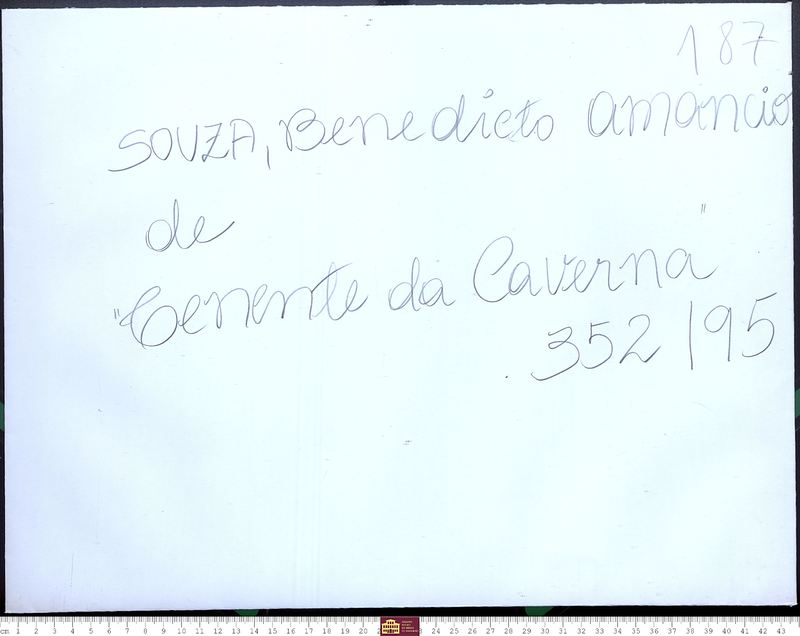 187
SOUZA, Benedicto Amancio
de
"Tenente da Caverna"
352/95
cm 1 2 3 4 5 6 7 8 9 10 11 12 13 14 15 16 17 18 19 20 24 25 26 27 28 29 30 31 32 33 34 35 36 37 38 39 40 41 42 43